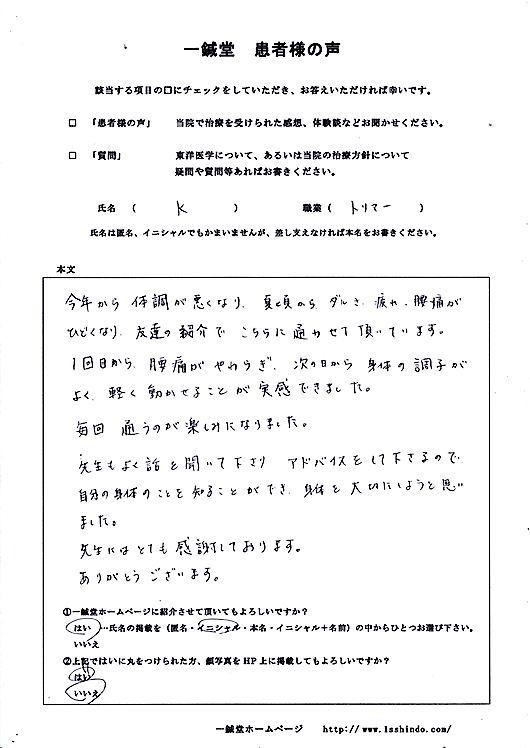 一鍼堂 患者様の声
該当する項目の□にチェックをしていただき、お答えいただければ幸いです。
□ 「患者様の声」 当院で治療を受けられた感想、体験談などお聞かせください。
□ 「質問」 東洋医学について、あるいは当院の治療方針について
疑問や質問等あればお書きください。
氏名 ( K ) 職業 ( トリマー )
氏名は匿名、イニシャルでもかまいませんが、差し支えなければ本名をお書きください。
本文
今年から 体調が悪くなり、夏頃から、ダルさ、疲れ、腰痛が
ひどくなり、友達の紹介で こちらに通わせて頂いています。
1回目から、腰痛が やわらぎ、次の日から 身体の調子が
よく、軽く動かせることが実感できました。
毎回 通うのが楽しみになりました。
先生もよく話を聞いて下さり アドバイスをして下さるので、
自分の身体のことを知ることができ、身体を大切にしようと思い
ました。
先生にはとても感謝しております。
ありがとうございます。
①一鍼堂ホームページに紹介させて頂いてもよろしいですか?
はい…氏名の掲載を(匿名・イニシャル・本名・イニシャル+名前)の中からひとつお選び下さい。
いいえ
②上記ではいに丸をつけられた方、顔写真をHP上に掲載してもよろしいですか?
はい
いいえ
一鍼堂ホームページ http://www.1sshindo.com/